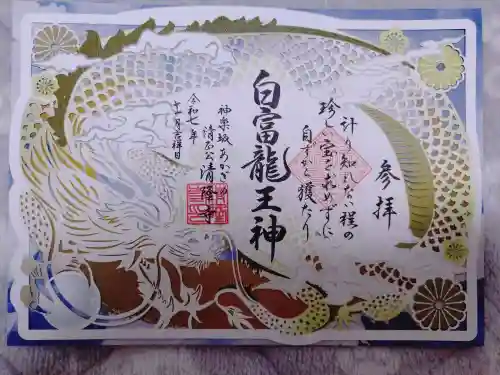 参拝
計り知れない程の
珍しい宝を求めずに
自ずから獲たり
白富龍王神
神楽坂 あかぎ
清隆寺
令和七年
十一月吉祥日